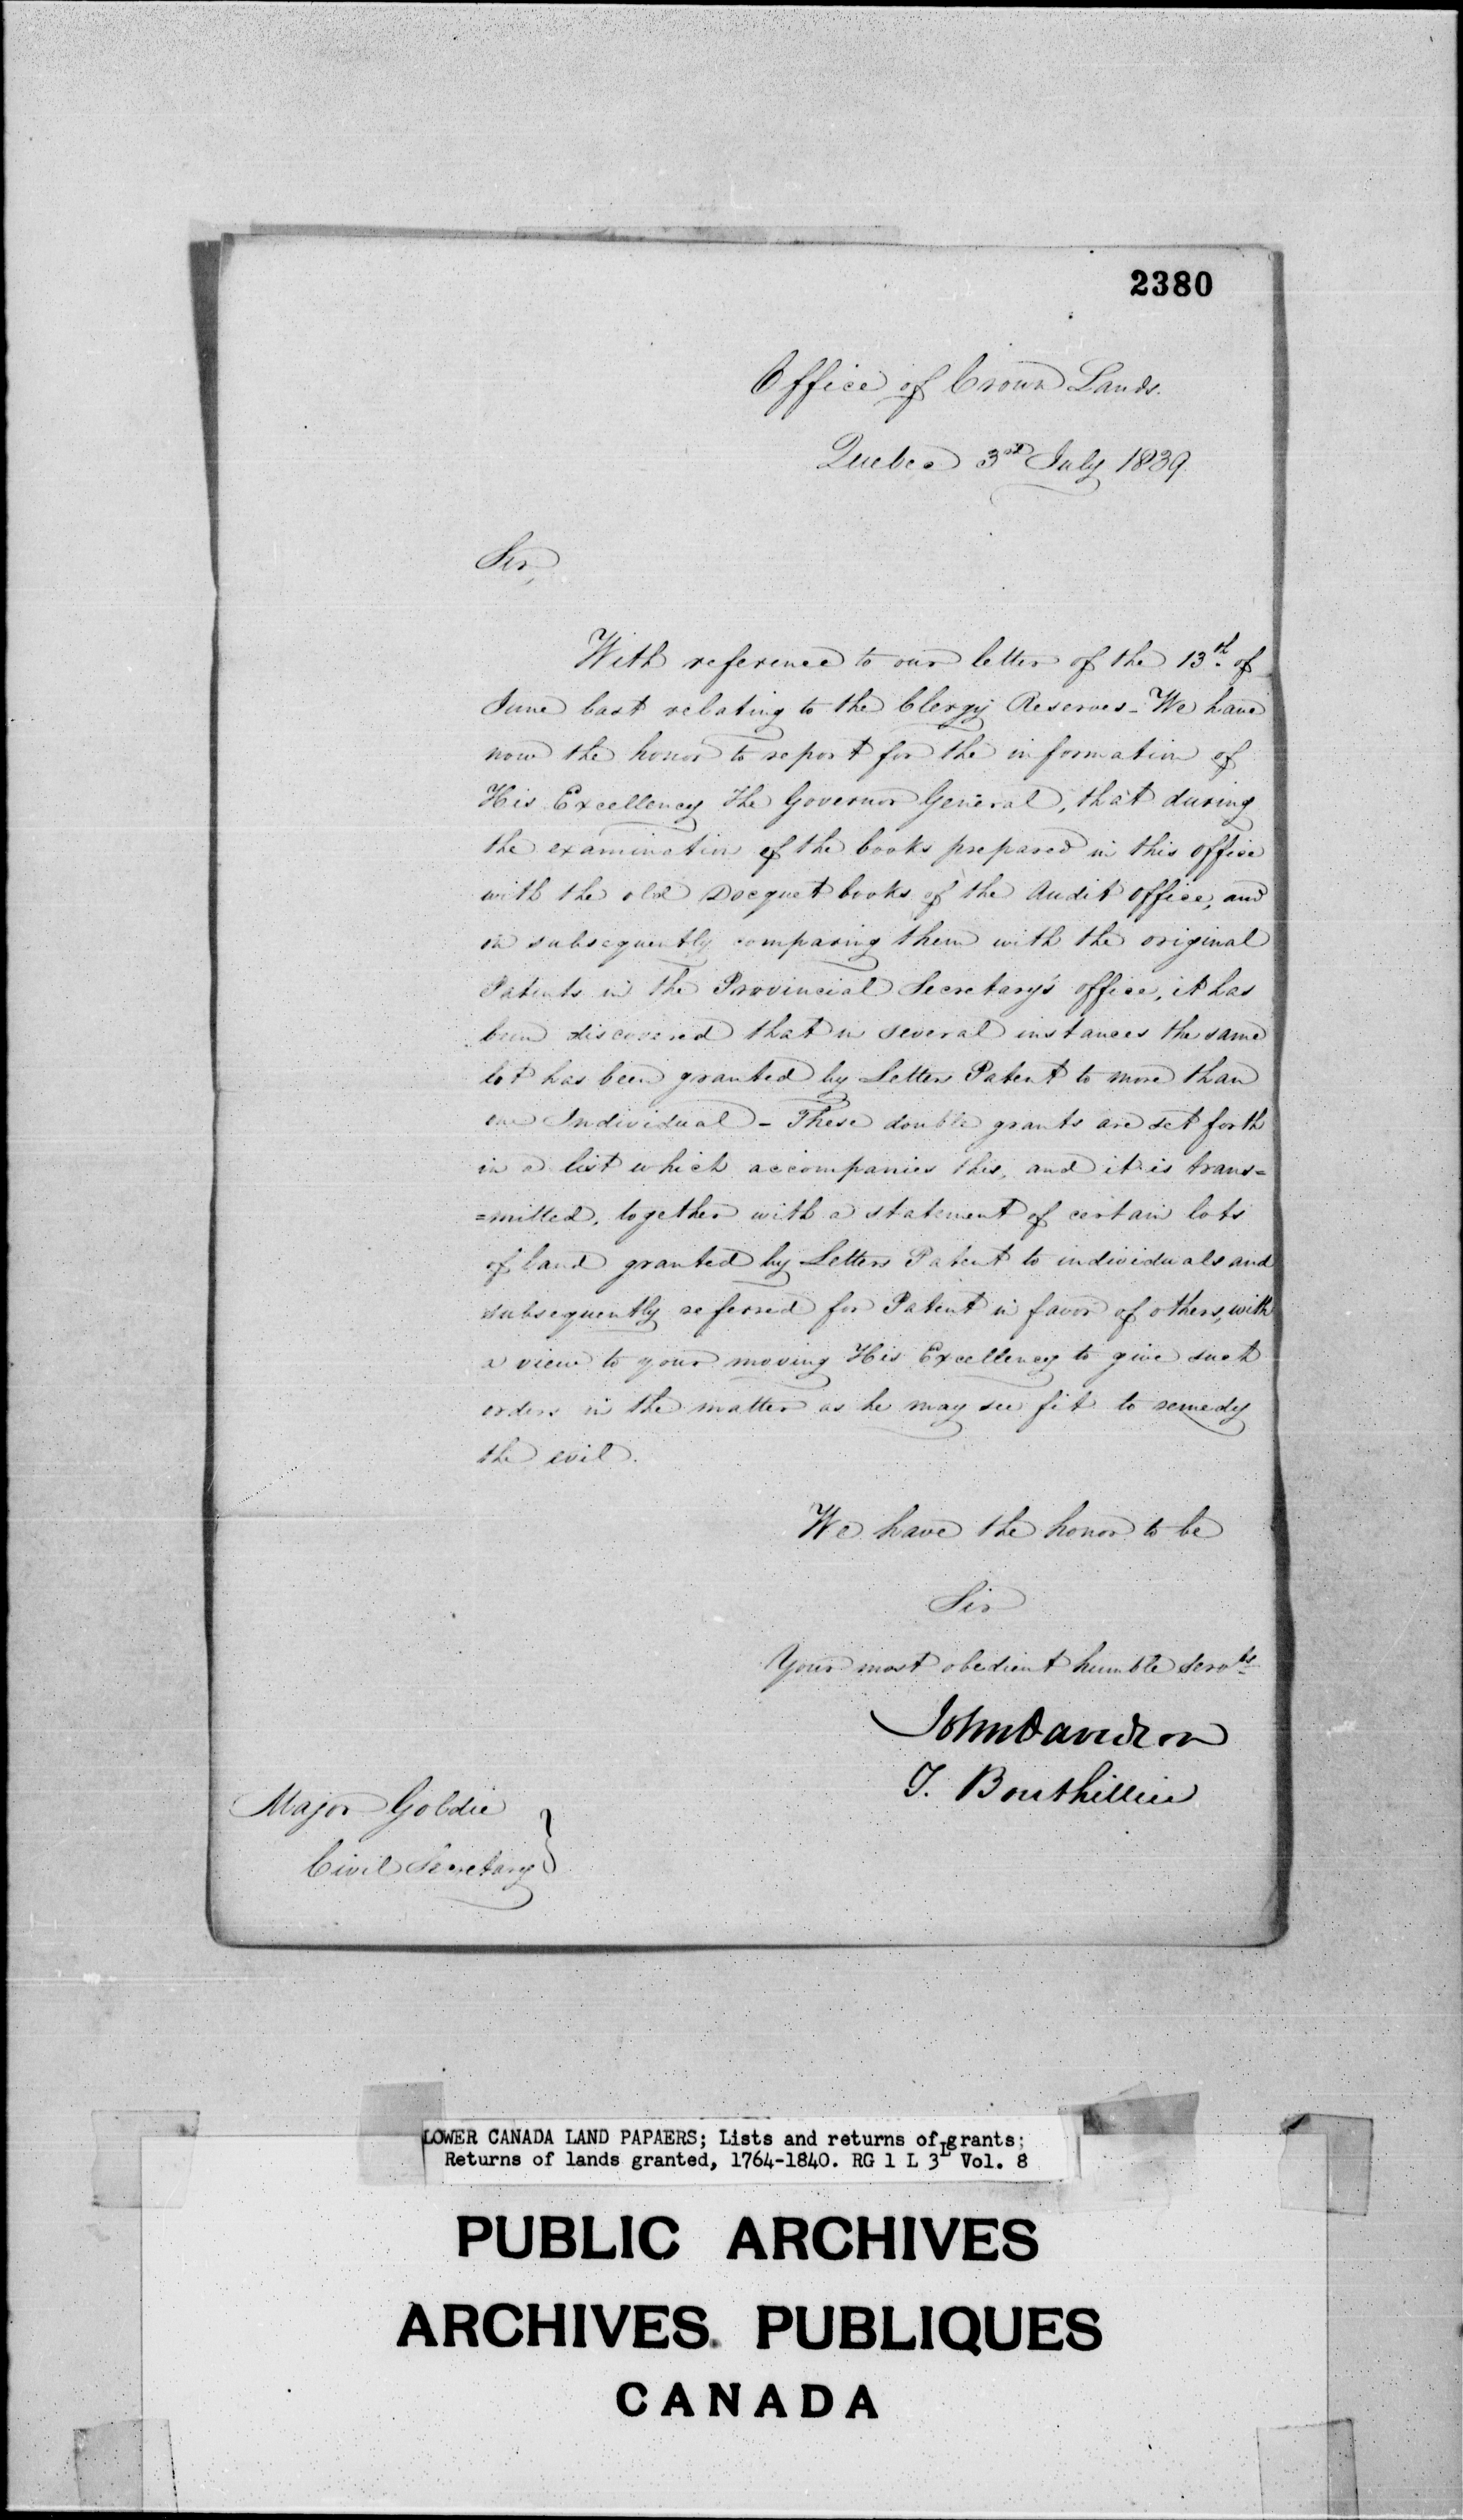 2380
Office of Crown Lands.
Quebec 3rd July 1839
Sir,
With reference to our letter of the 13th. of
June last relating to the Clergy Reserves - We have
now the honor to report for the information of
His Excellency The Governor General, that during
the examination of the books prepared in this office
with the old Docquet books of the Audit office, and
in subsequently comparing them with the original
Patents in the Provincial Secretary's office, it has
been discovered that in several instances the same
lot has been granted by Letters Patent to more than
one Individual - These double grants are set forth
in a list which accompanies this, and it is trans=
=mitted, together with a statement of certain lots
of land granted by Letters Patent to individuals and
subsequently referred for Patent in favor of others, with
a view to your moving His Excellency to give such
orders in the matter as he may see fit to remedy
the evil.
We have the honor to be
Sir
Your most obedient humble Servts.
John Davidson
T. Bouthillier
Major Goldie
Civil Secretary
LOWER CANADA LAND PAPAERS; Lists and returns of grants;
Returns of lands granted, 1764-1840. RG 1 L 3L Vol. 8
PUBLIC ARCHIVES
ARCHIVES PUBLIQUES
CANADA